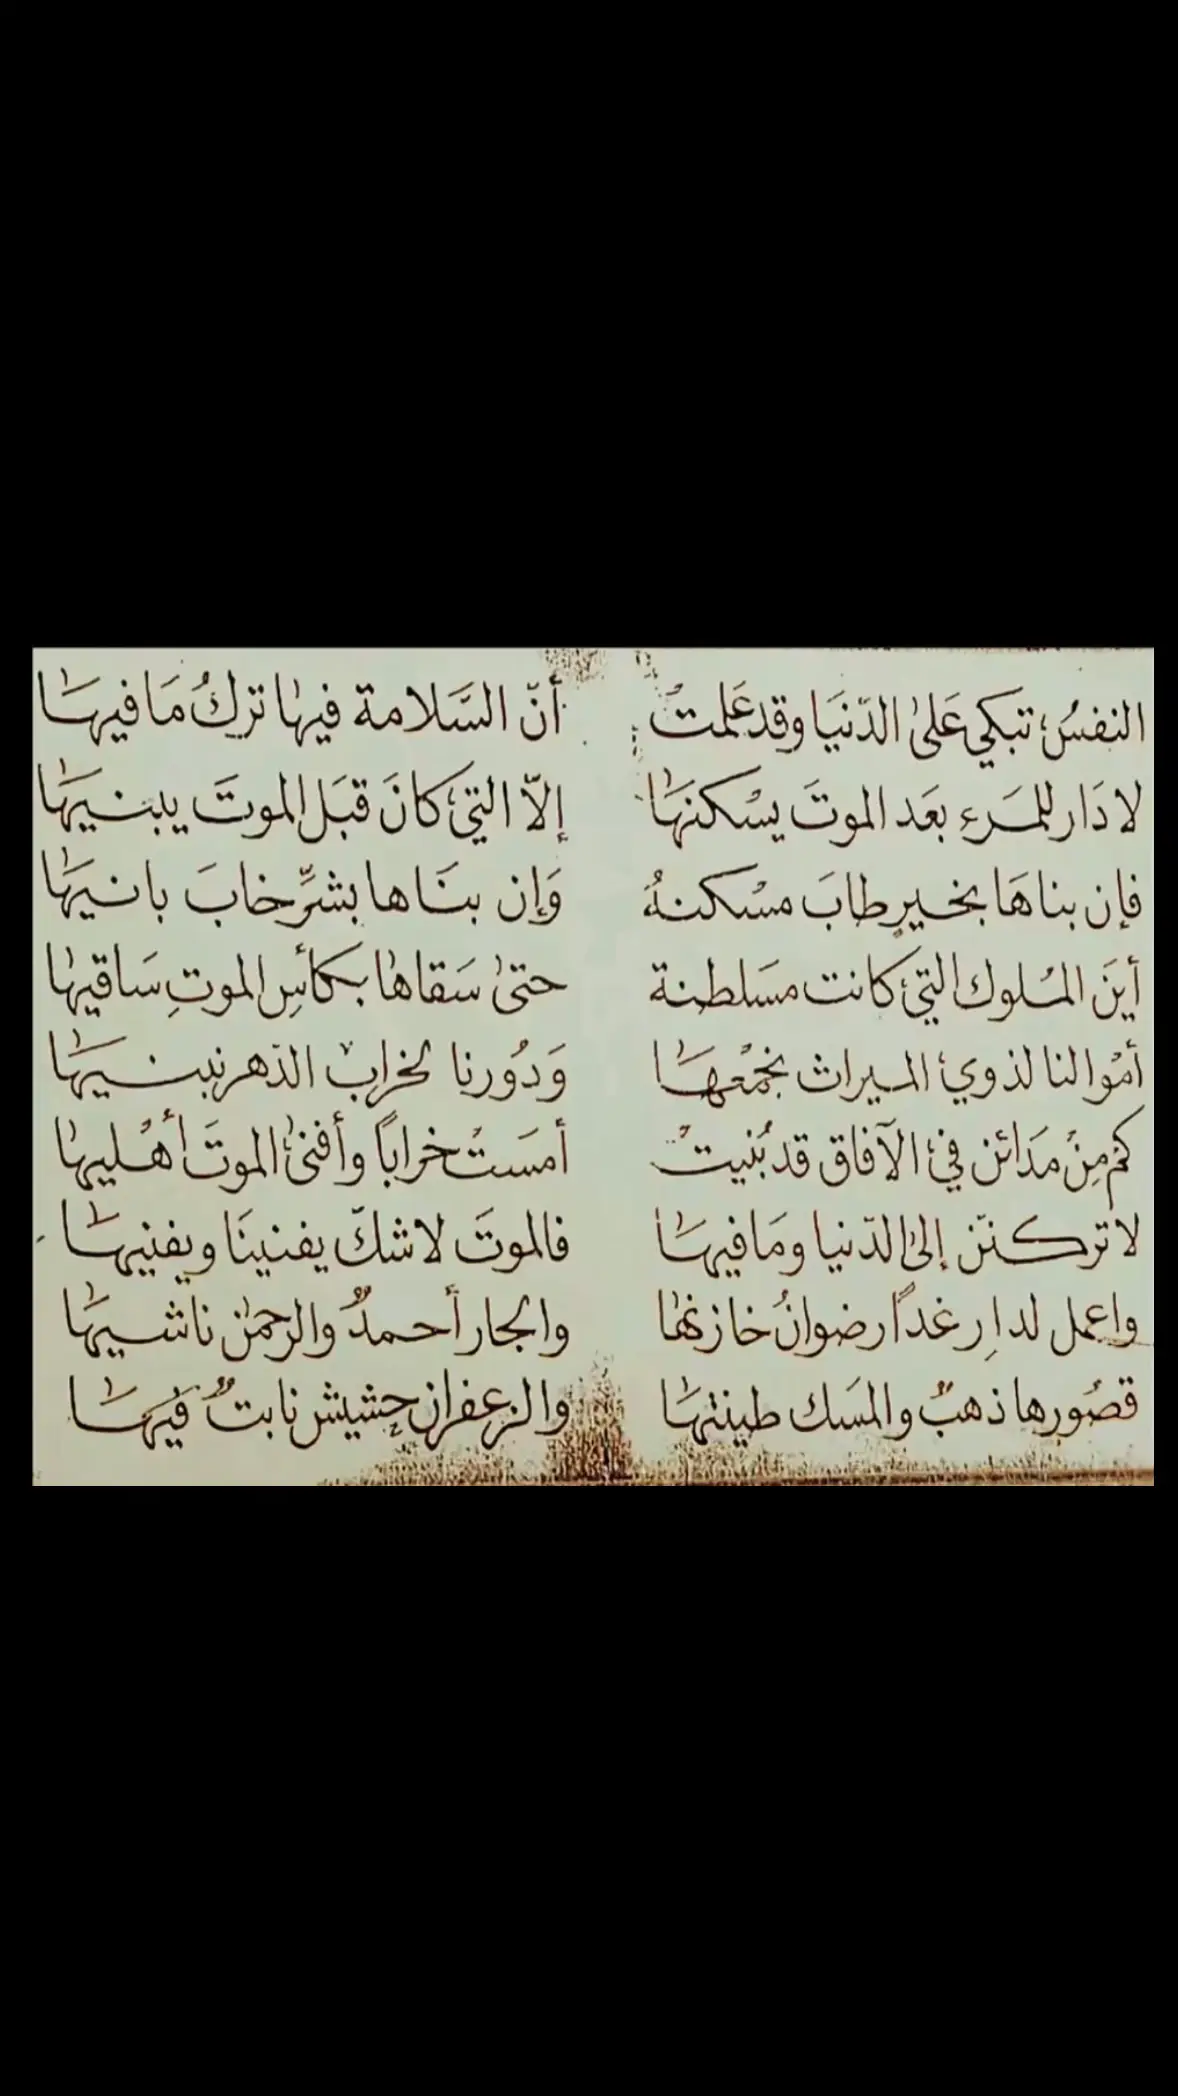 النفسُ تبكي عَلىٰ الدّنيَا وقد عَلمتْ أنّ السَّلامة فيهٰا تركُ مَا فيهَا
لا دَار للمَرء بعَد الموتَ يسْكنهَا إلاّ التي كانَ قبَل الموتَ يبنيهَا
فإن بناهَا بخير طابَ مسْكنهُ وَإن بنَاها بشرٍّ خابَ بانيهَا
أينَ الملوك التي كانت مسَلطنة حتىٰ سَقاهٰا بكأسِ الموتِ سَاقيهٰا
أمْوالنا لذوي الميراث نجْمعْهَا وَدُورنا لخراب الدّهر نبنيهَا
كمْ مِنْ مَدَائن في الآفاق قد بُنيتْ أمسَتْ خراباً وأفنىٰ الموتَ أهْليهٰا
لا تركننّ إلىٰ الدّنيا ومَا فيهَا فالموتَ لا شكّ يفنينَا ويفنيهَا
واعمل لدارِ غداً رضوانُ خازنهٰا والجار أحمدٌ والرحمٰن ناشيهَا
قصُورها ذهبٌ والمسَك طينتهَا والزعفران حشيش نابتٌ فيهَا